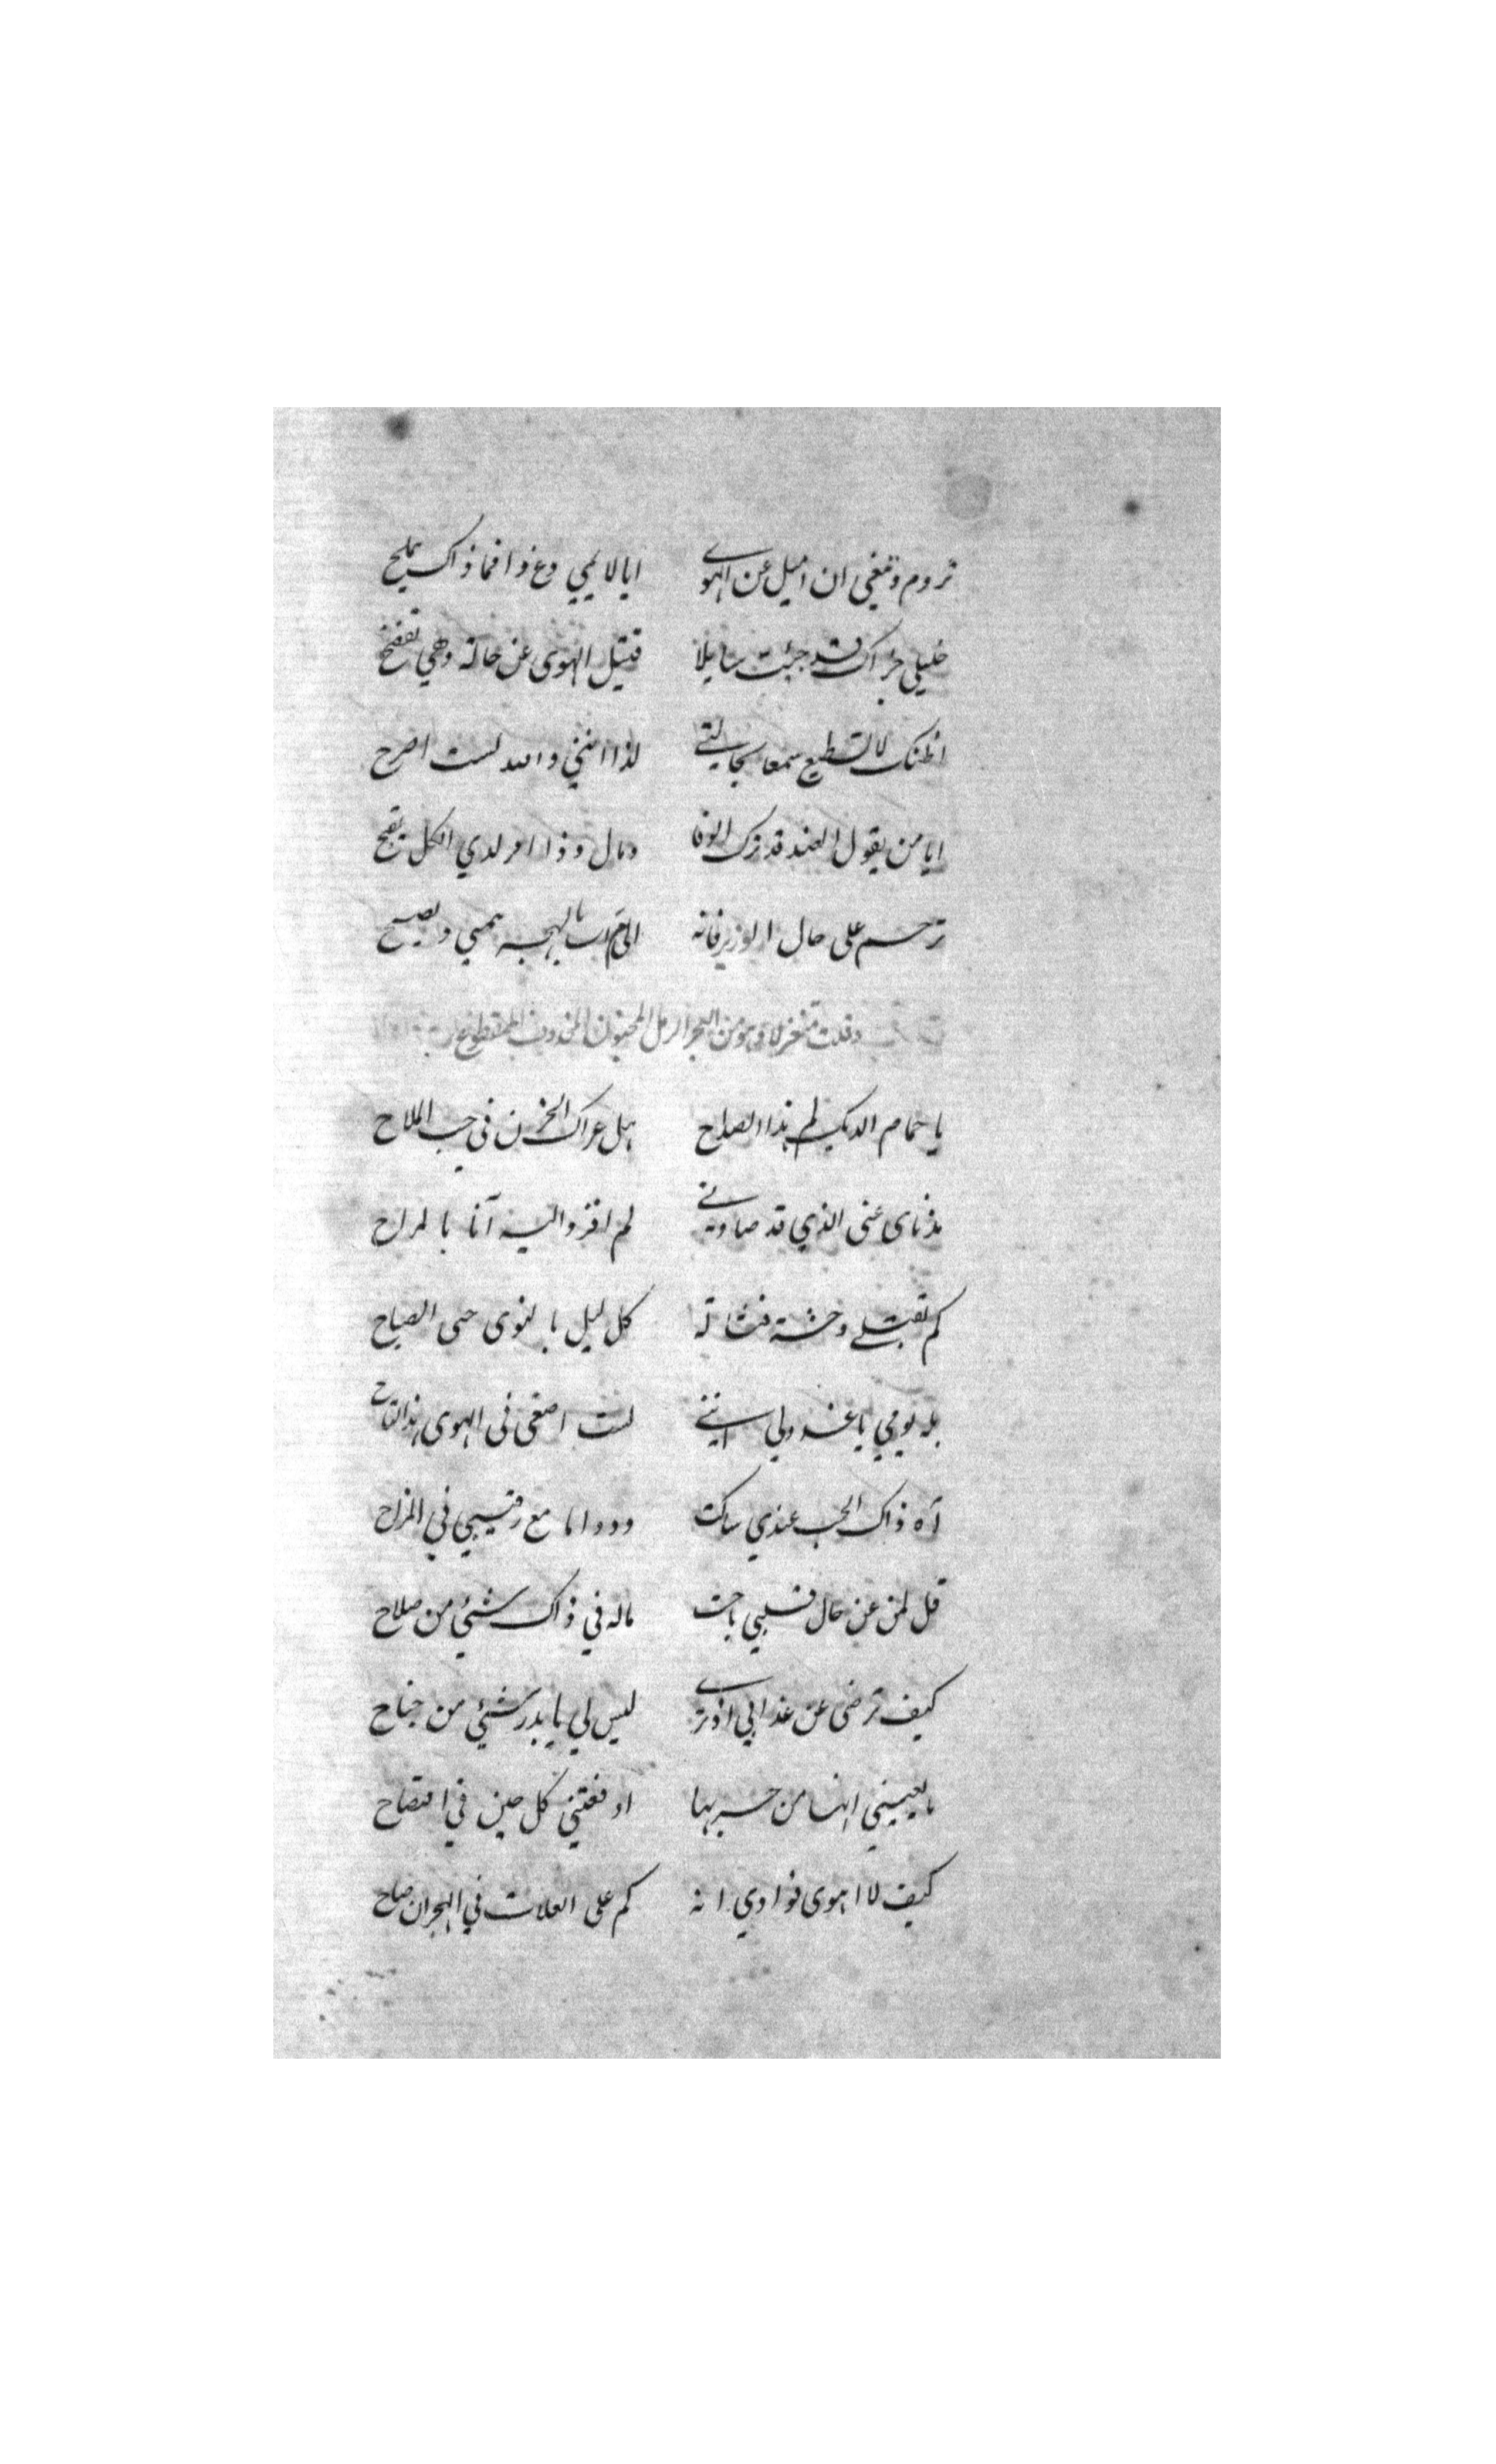 تروم وتبغي ان اميل عن الهوى ايا لايمي دع ذا فما ذاك يملح
خليلي جزاك قد جئت سايلا قتيل الهوى عن حالة وهي تفضح
اظنك لا تسطيع سمعا بحالتي لذا انني والله لست اصرح
ايا من يقول العند قد ترك الوفا ومال وذا امر لدي الكل يقبح
ترحم على حال الوزير فانه بالهجر يمسي ويصبح
وقلت متغزلا وهو من البحر الرمل المخبون المحذوف المقطوع
يا حمام الديك لم هذا الصياح هل عراك الحزن في حب الملاح
مذ ناى عني الذي قد صادني لم افز واليه آنا بالمراح
كم تقتلي وحشة كل ليل بالنوى حتى الصباح
يا عذولي انني لست اصغى في الهوى هذا
آه ذاك الحب عندي ساكت مع رقيبي في المزاح
قل لمن عن حال قلبي باحث ماله في ذاك شيئ من صلاح
كيف ترضى عن عذابي اذ ترى ليس لي يا بدر شيئ من جناح
ما لعيني انها من حربها اوقعتني كل حين في افتضاح
كيف لا اهوى فوادي انه كم على العلات في الهجران صاح